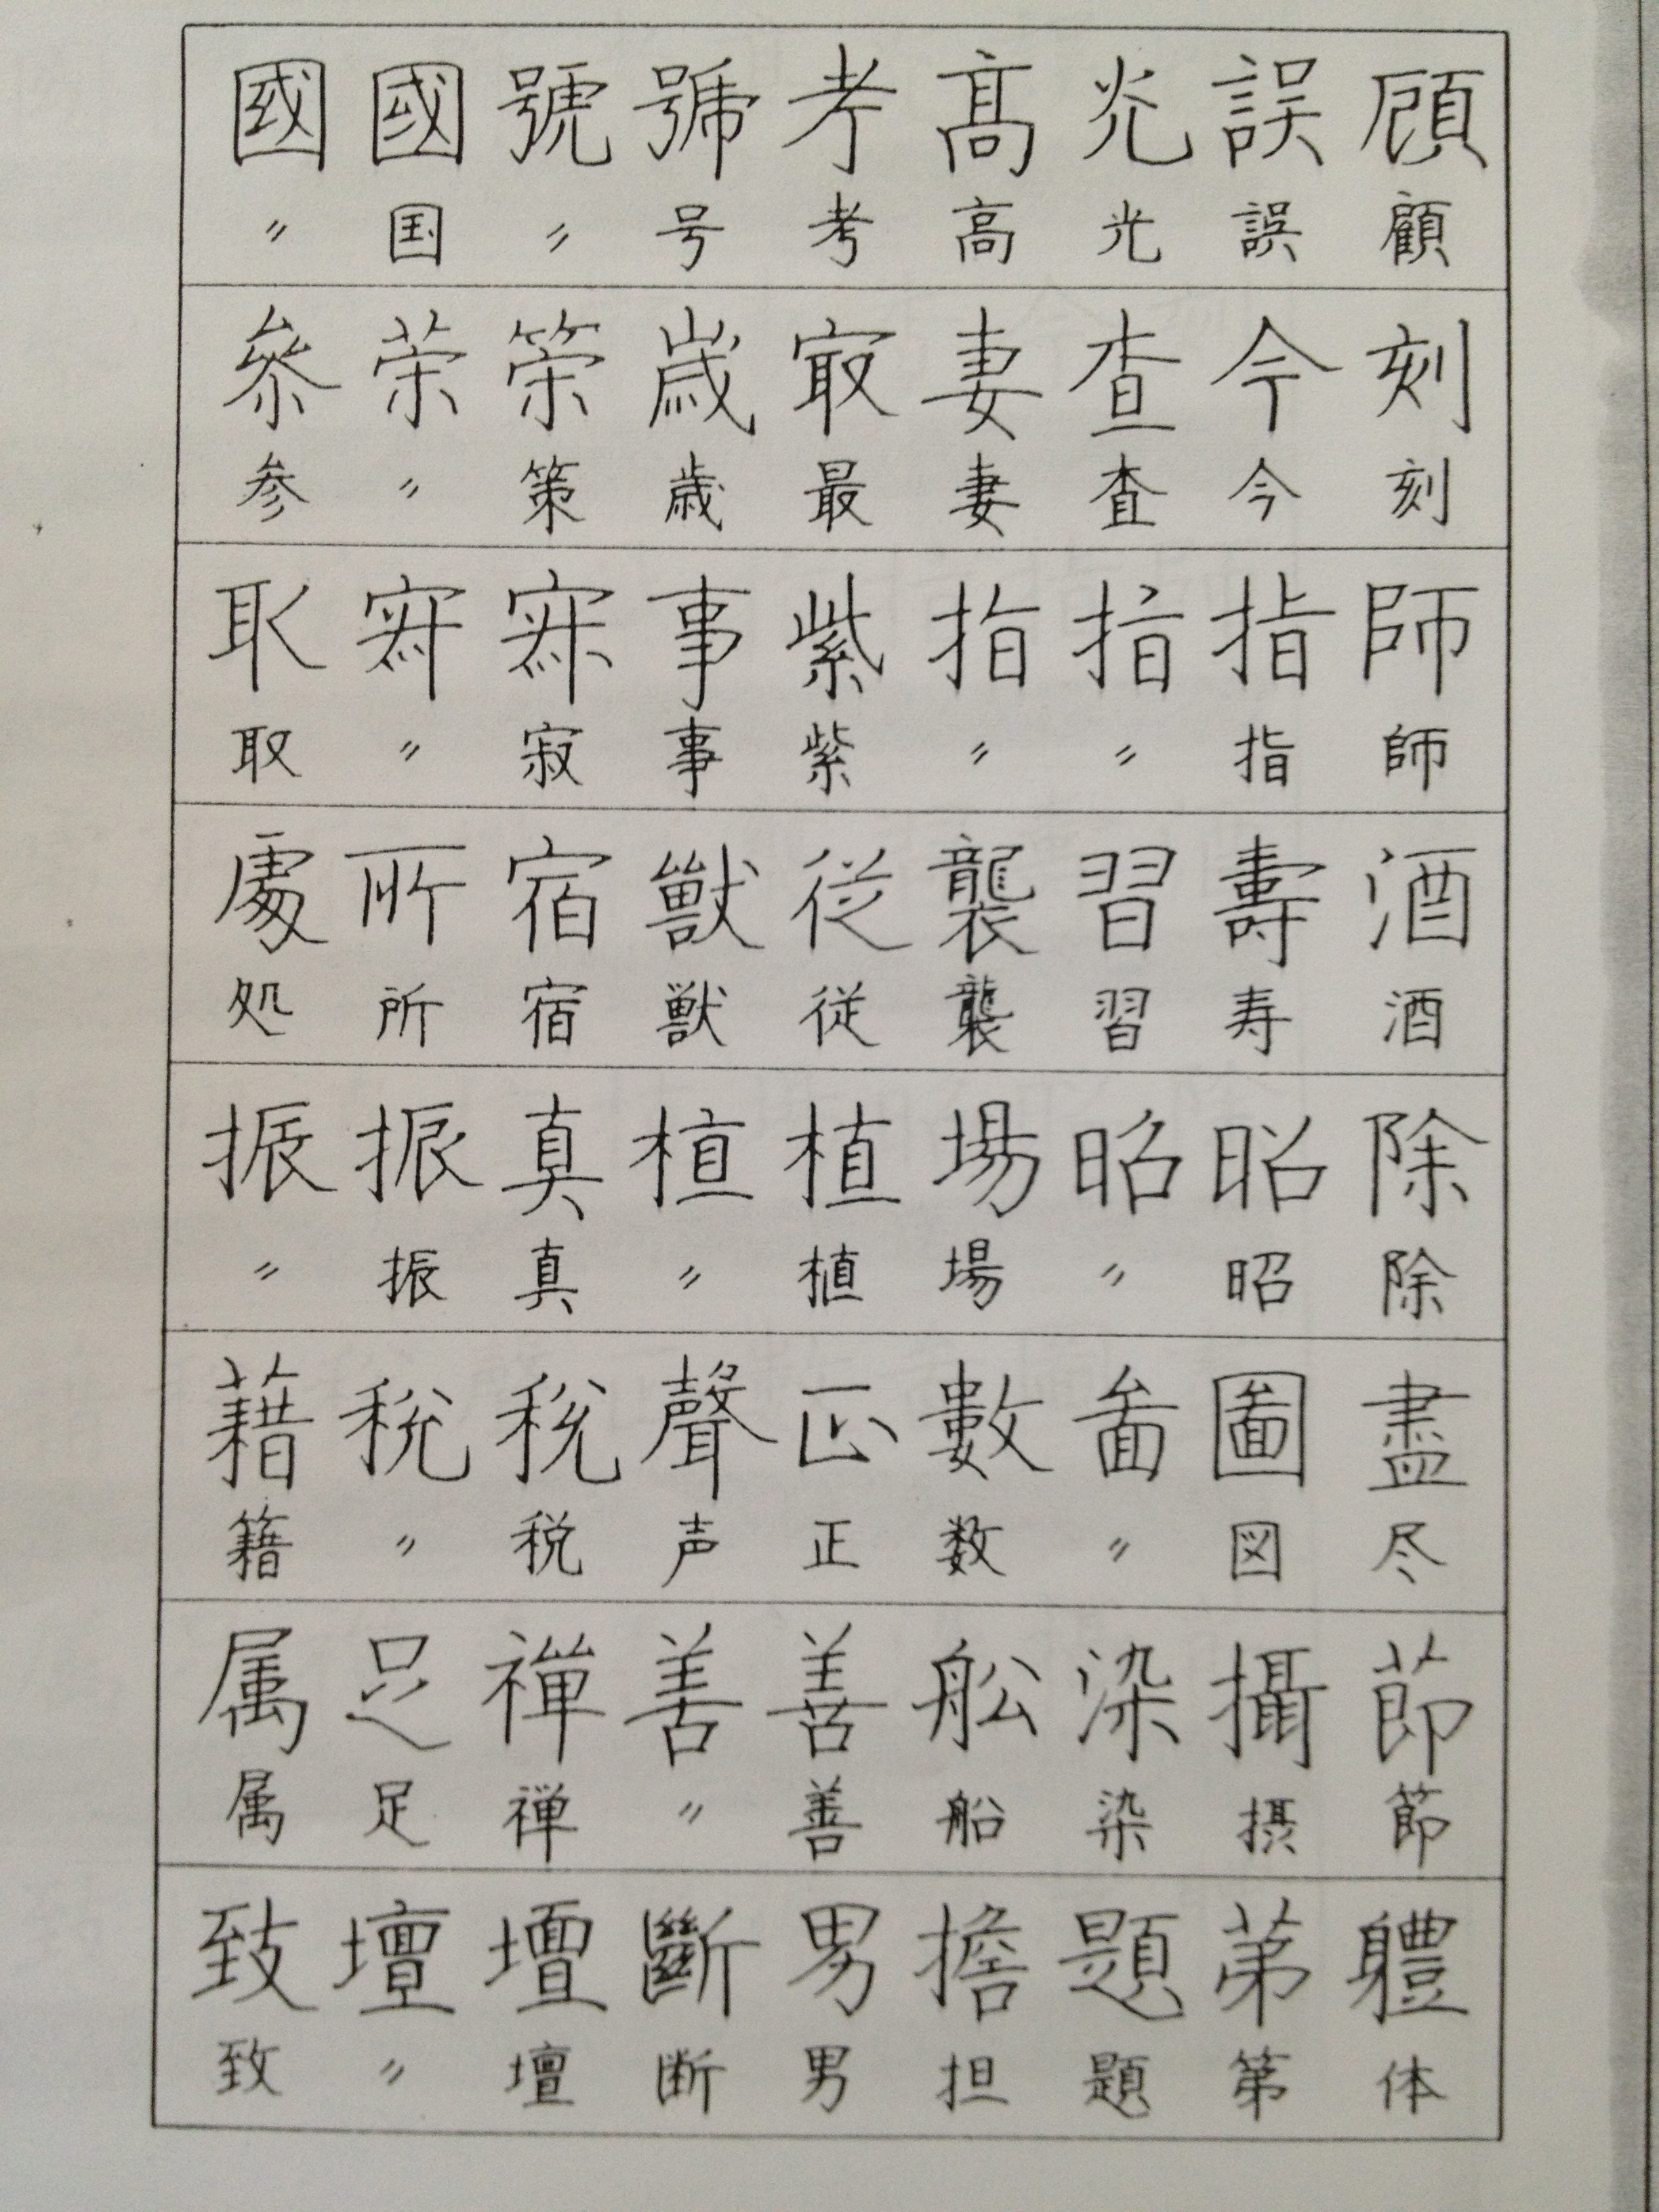 顧 誤 灮 髙 考 號 號 國 國
顧 誤 光 高 考 号 〃 国 〃
刻 今 查 妻 冣 歳 筞 茦 叅
刻 今 査 妻 最 歳 策 〃 参
師 指 指 指 紫 事 㝥 㝥 耴
師 指 〃 〃 紫 事 寂 〃 取
酒 壽 習 襲 従 獸 宿 所 處
酒 寿 習 襲 従 獣 宿 所 処
除 昭 昭 場 植 植 真 振 振
除 昭 〃 場 植 〃 真 振 〃
盡 圖 啚 數 正 聲 稅 税 藉
尽 図 〃 数 正 声 税 〃 籍
莭 攝 染 舩 善 善 禅 足 属
節 摂 染 船 善 〃 禅 足 属
軆 苐 題 擔 男 斷 壇 壇 致
体 第 題 担 男 断 壇 〃 致